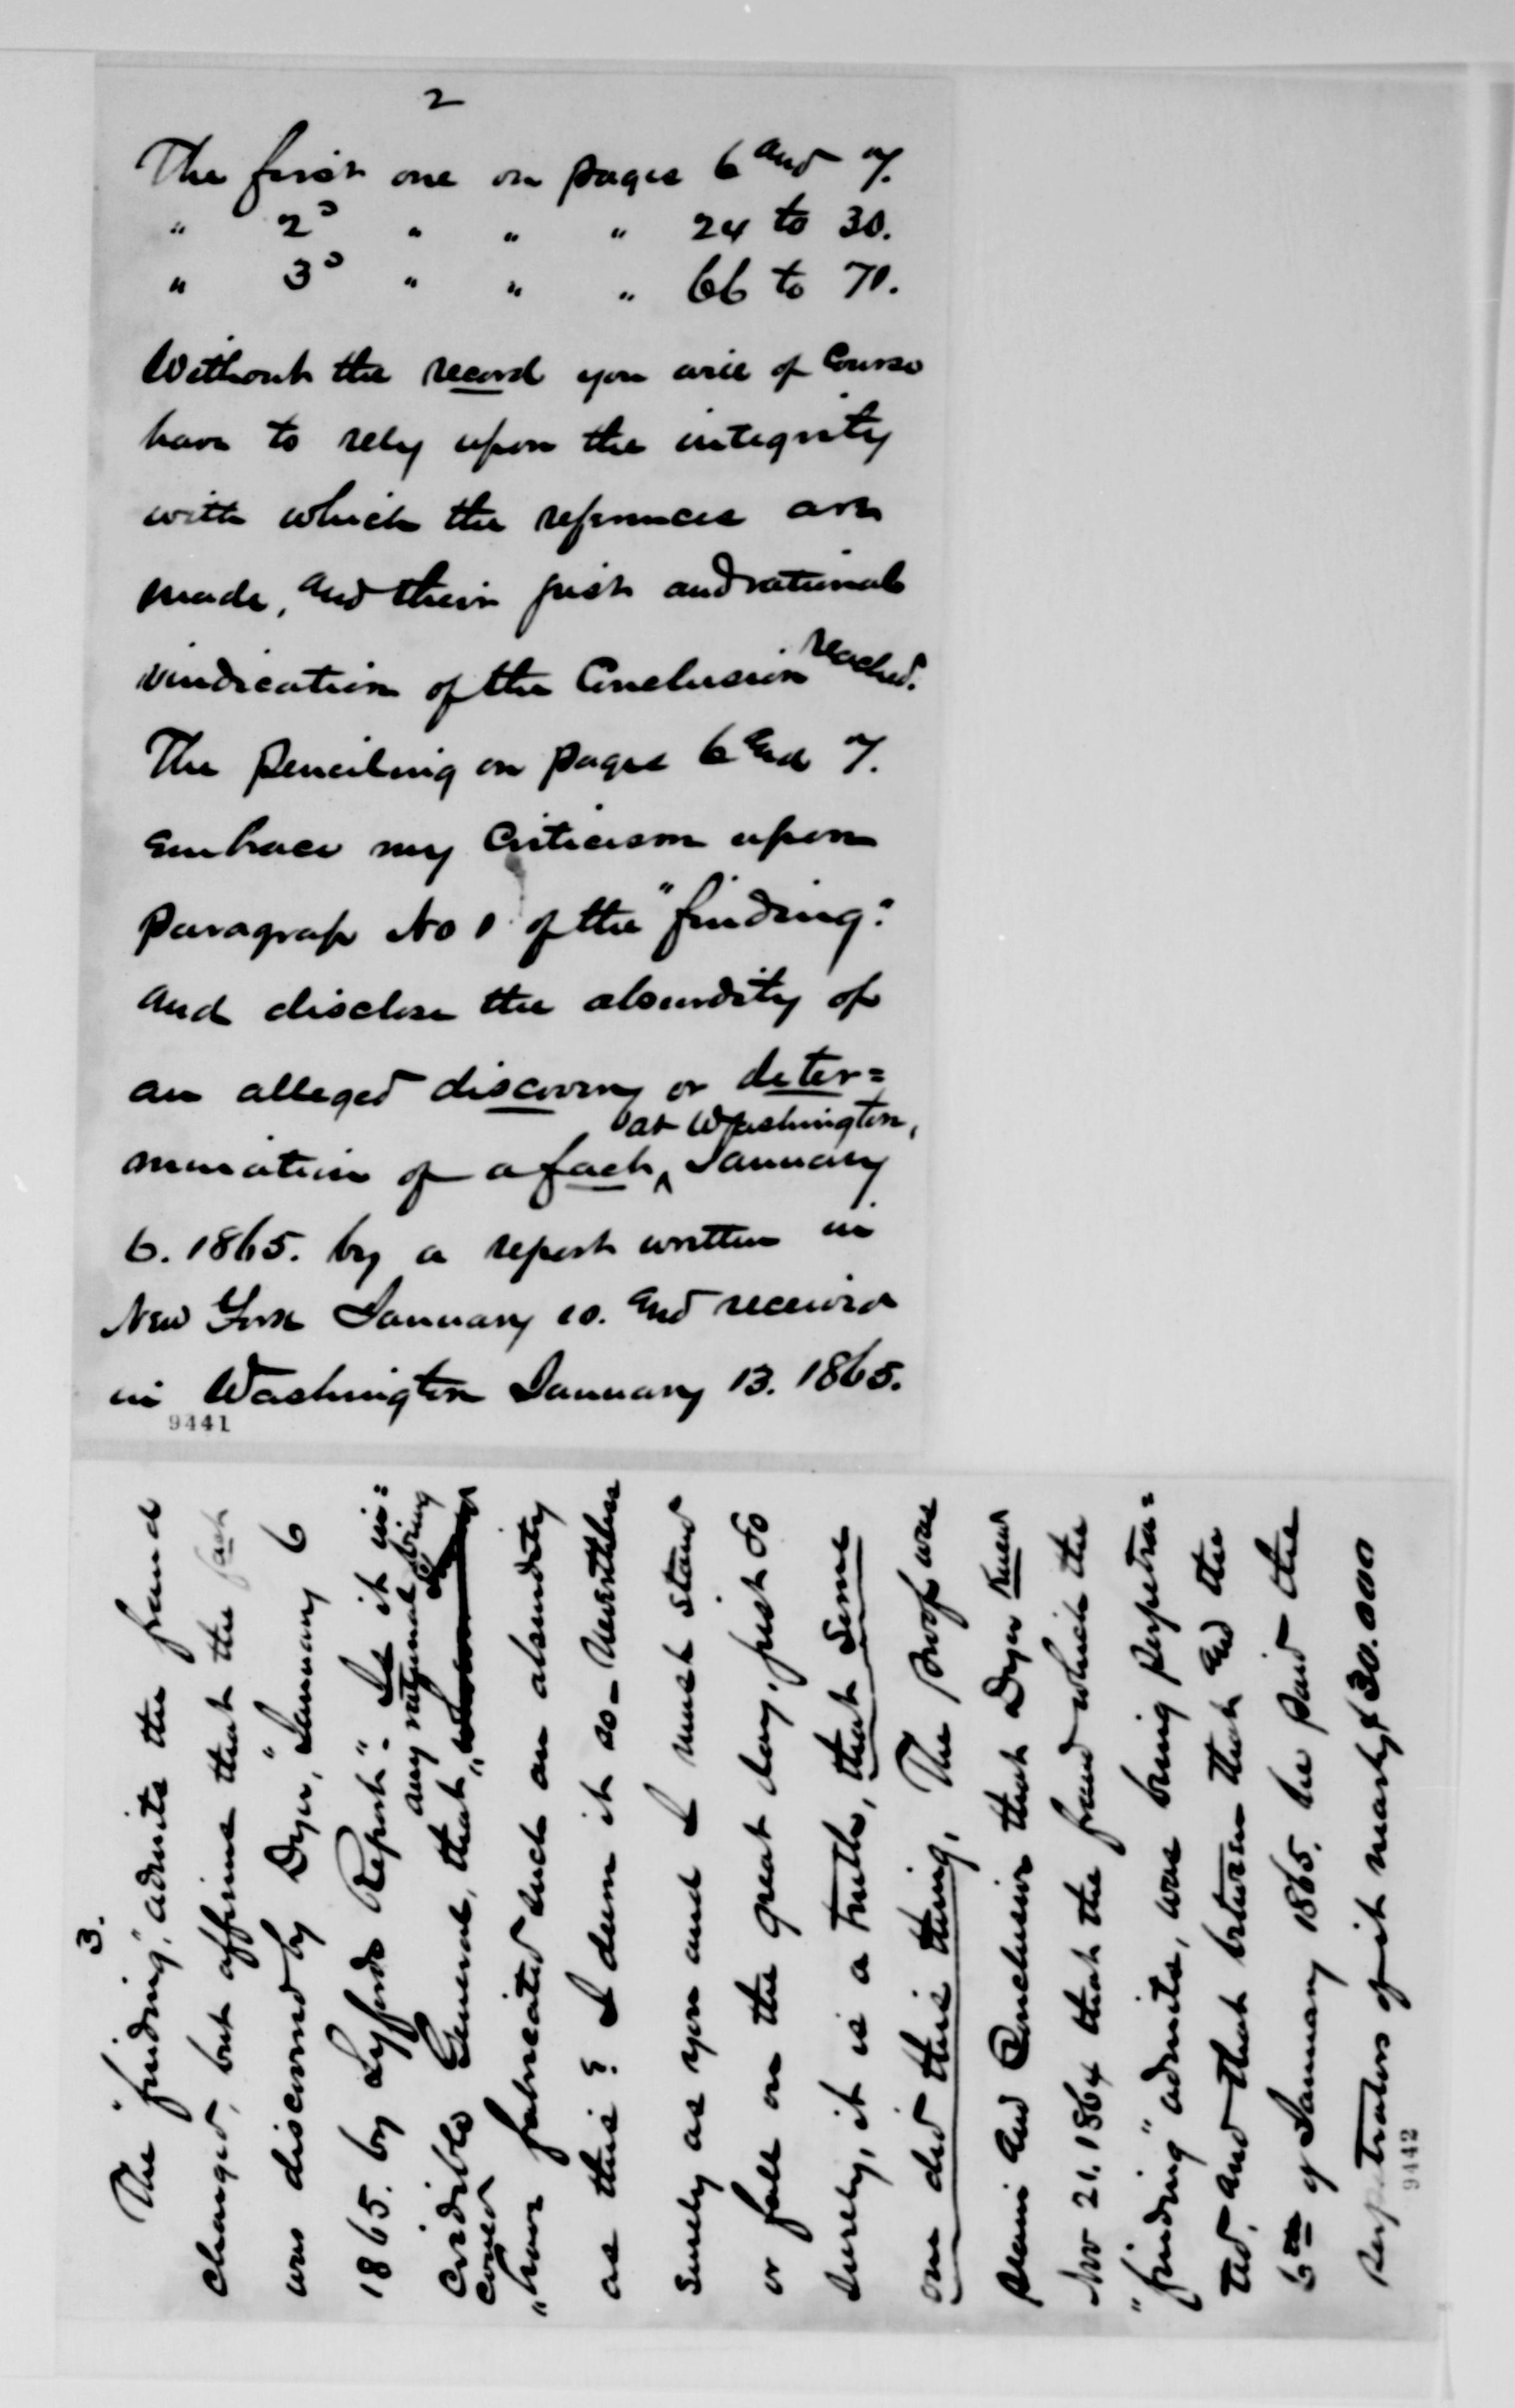 2
The first one on pages 6 and 7.
" 2d " " " 24 to 30.
" 3d " " " 66 to 70.
Without the record you will of course
have to rely upon the integrity
with which the refernces are
made, and their just and rational
vindication of the Conclusion reached.
The penciling on pages 6 and 7.
embrace my Criticism upon
paragraph No 1 of the "finding".
and disclose the absurdity of
an alleged discovery or deter=
at Washington,
mination of a fact ^ January
6. 1865. by a report written in
New York January 10. and received
in Washington January 13. 1865.
9441
3.
The "finding," admits the fraud
charged, but affirms that the fact
was discovered by Dyer, "January 6
1865. by Lyfords Report". Is it in:
any rational being
credible General, that
could
"have fabricated such an absurdity
as this? I deem it so - Nevertheless
surely as you and I must stand
or fall on the great day, just so
surely, it is a truth, that some
one did this thing. The proof was
plain and Conclusive that Dyer knew
Nov 21. 1864 that the fraud which the
"finding" admits, was being perpetra=
ted, and that between that and the
6th of January 1865. he paid the
perpetrators of it nearly $30.000
9442